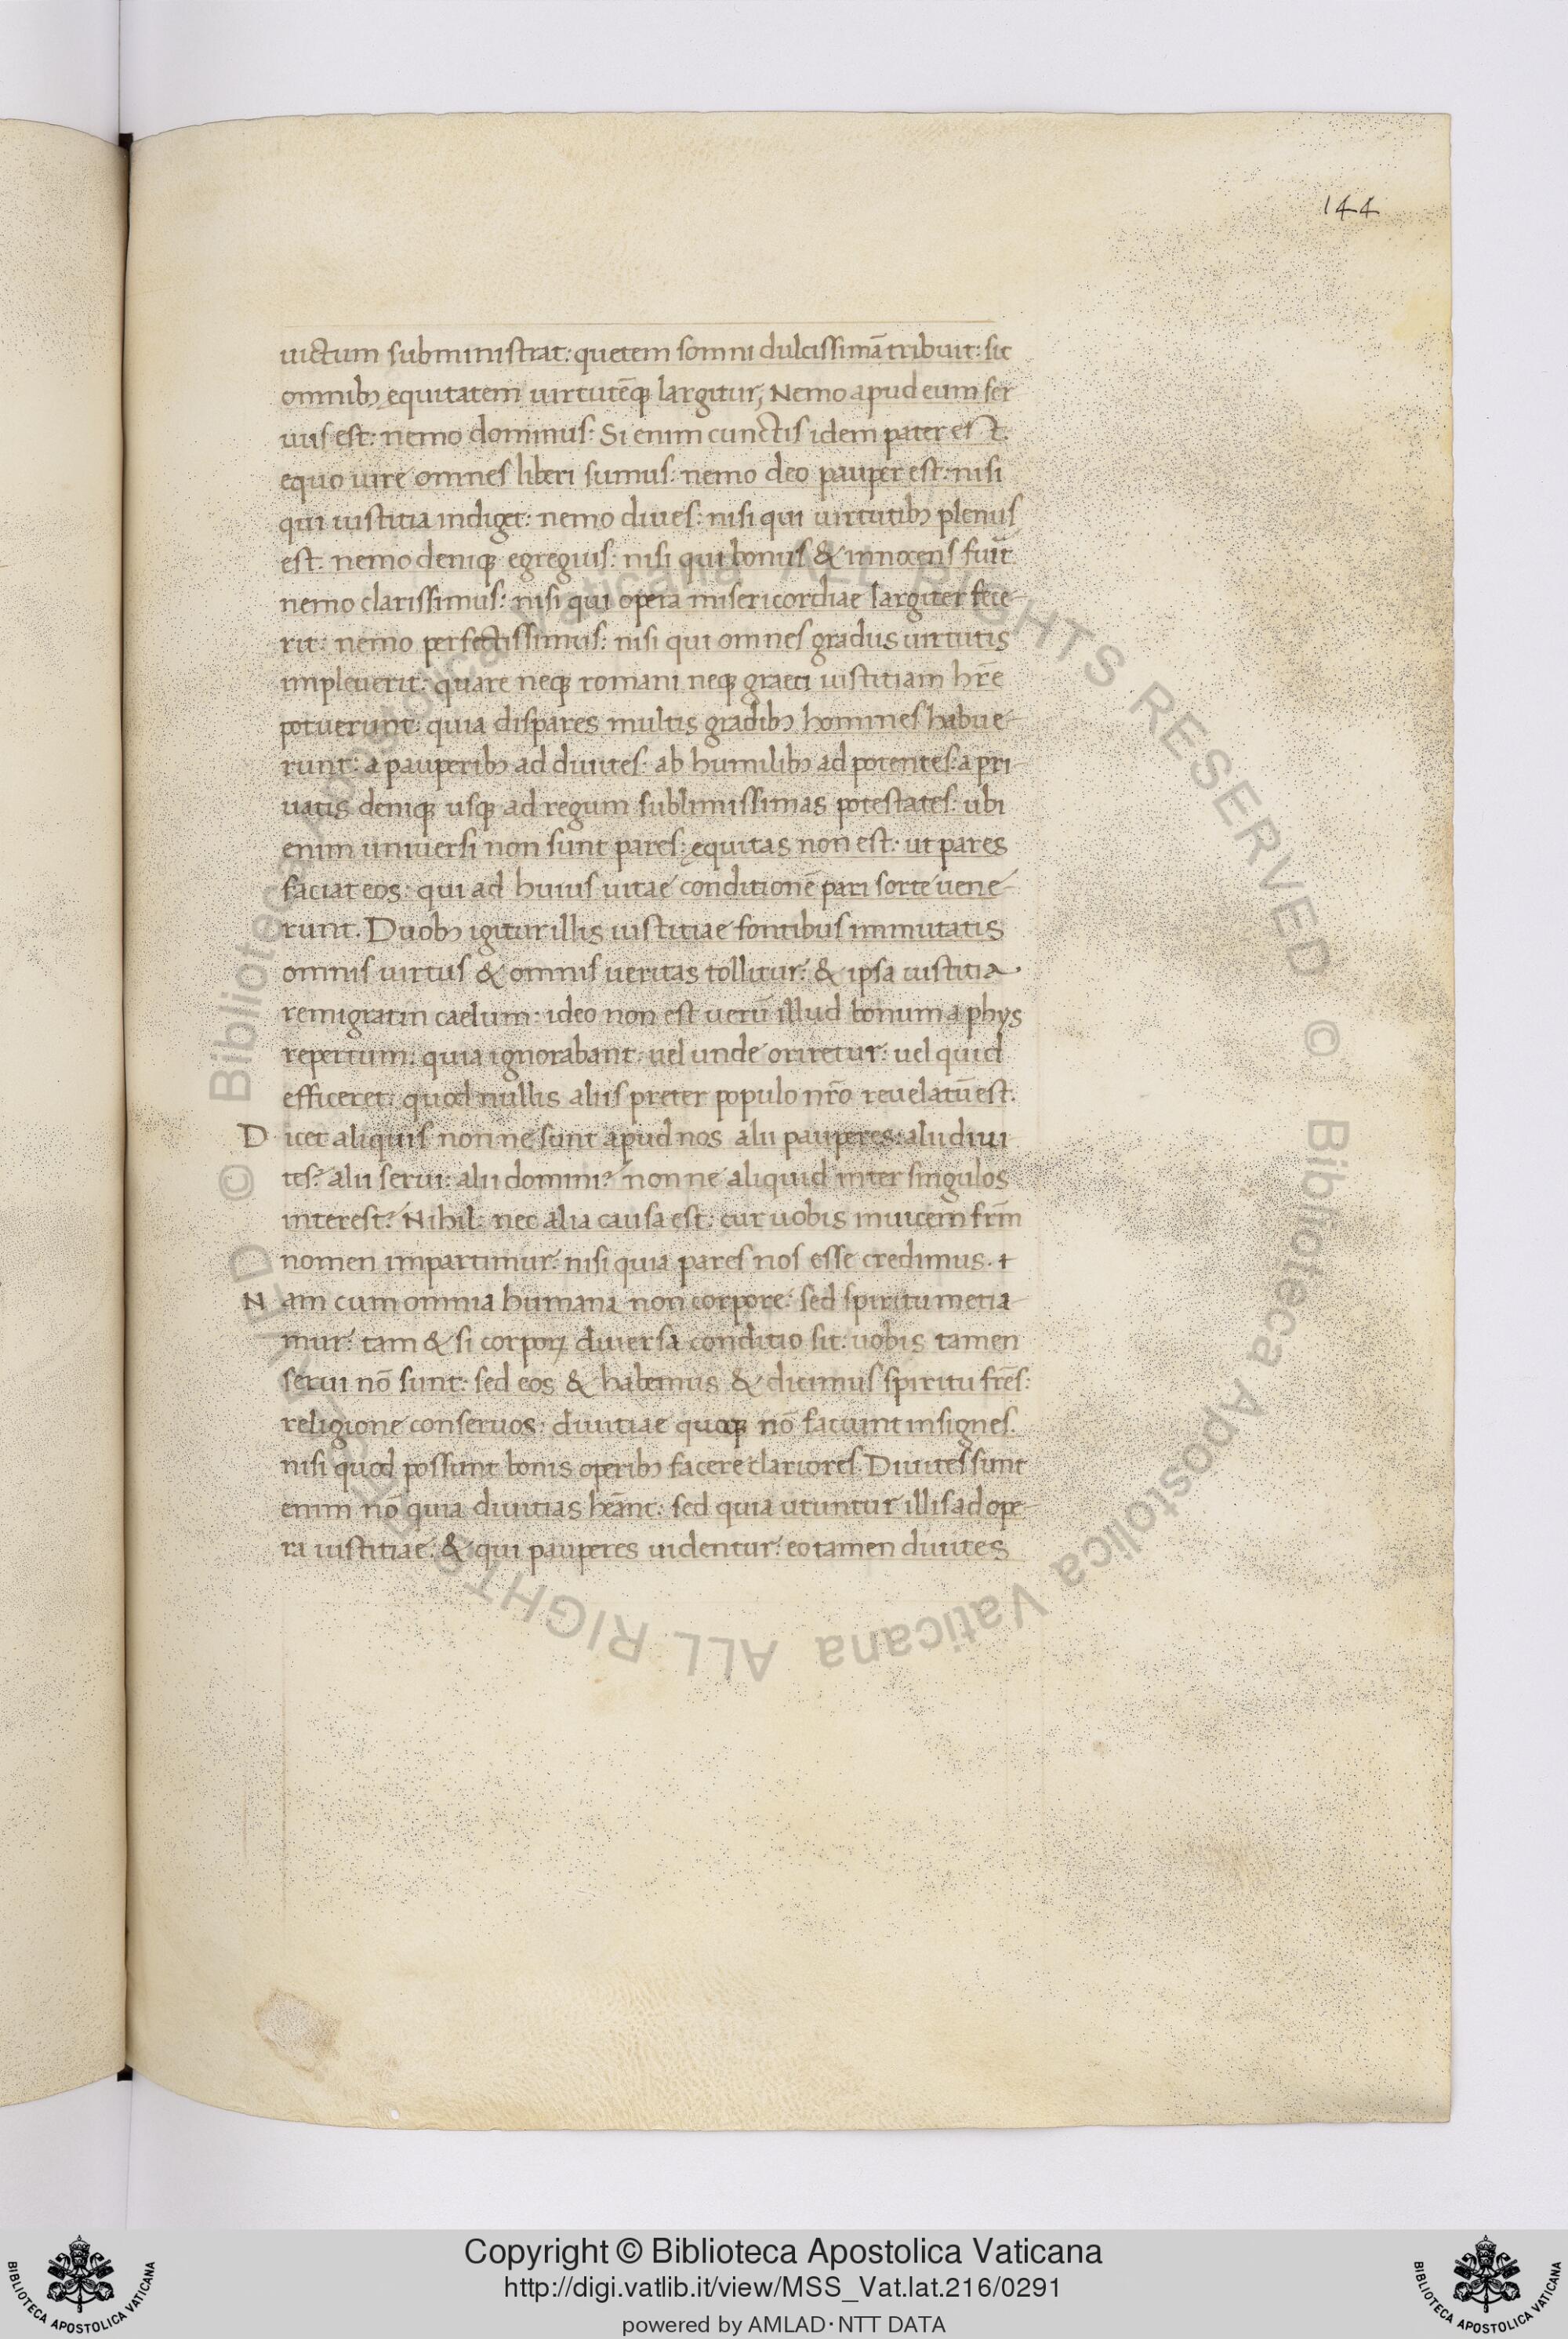 144
uictum subministrat: quetem somni dulcissimā tribuit: sic
omnibꝫ equitatem uirtutēqꝫ largitur, Nemo apud eum ser
uus est: nemo dominus: Si enim cunctis idem pater est.
equo iure omnes liberi sumus: nemo deo pauper est: nisi
qui iustitia indiget: nemo diues: nisi qui uirtutibꝫ plenus
est: nemo deniqꝫ egregius: nisi qui bonus & innocens fuit
nemo clarissimus: nisi qui opera misericordiae largiter fece-
rit: nemo perfectissimus: nisi qui omnes gradus uirtutis
impleuerit: quare neqꝫ romani neqꝫ graeci iustitiam hr̄e
potuerunt: quia dispares multis gradibꝫ homines habue-
runt: a pauperibꝫ ad diuites: ab humilibꝫ ad potentes: a pri
uatis deniqꝫ usqꝫ ad regum sublimissimas potestates: ubi
enim uniuersi non sunt pares: equitas non est: ut pares
faciat eos: qui ad huius uitae conditionē pari sorte uene-
runt. Duobꝫ igitur illis iustitiae fontibus immutatis
omnis uirtus & omnis ueritas tollitur: & ipsa iustitia
remigrat in caelum: ideo non est uerū illud bonum a phys
repertum: quia ignorabant: uel unde oriretur: uel quid
efficeret: quod nullis aliis preter populo nr̄o reuelatū est.
D icet aliquis non ne sunt apud nos alii pauperes: alii diui
tes? alii serui: alii domini? non ne aliquid inter singulos
interest? Nihil: nec alia causa est: cur uobis inuicem frm̄
nomen impartimur: nisi quia pares nos esse credimus. t
N am cum omnia humana non corpore: sed spiritu metia-
mur: tam & si corpoꝝ diuersa conditio sit: uobis tamen
serui nō sunt: sed eos & habemus & dicimus spiritu frēs:
religione conseruos: diuitiae quoqꝫ nō faciunt insignes.
nisi quod possunt bonis operibꝫ facere clariores. Diuites sunt
enim nō quia diuitias hēant: sed quia utuntur illis ad ope-
ra iustitiae: & qui pauperes uidentur: eo tamen diuites
© Biblioteca Apostolica Vaticana ALL RIGHTS RESERVED © Biblioteca Apostolica Vaticana ALL RIGHTS RESERVED
Copyright © Biblioteca Apostolica Vaticana
http://digi.vatlib.it/view/MSS_Vat.lat.216/0291
powered by AMLAD·NTT DATA
BIBLIOTECA APOSTOLICA VATICANA
BIBLIOTECA APOSTOLICA VATICANA